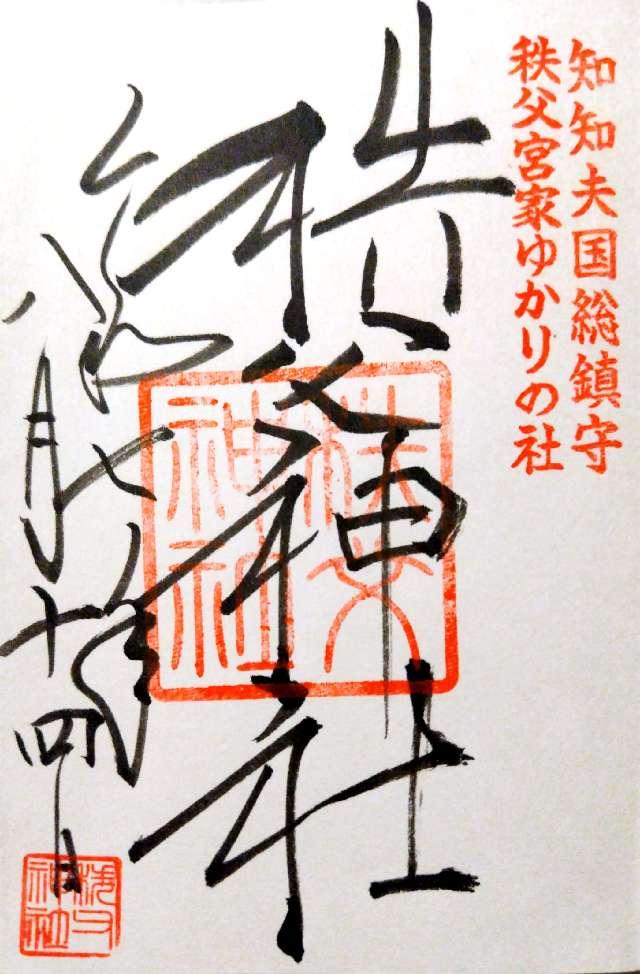 知知夫国総鎮守
秩父宮家ゆかりの社
秩父神社
秩父神社
令和七年
八月十四日
秩父神社